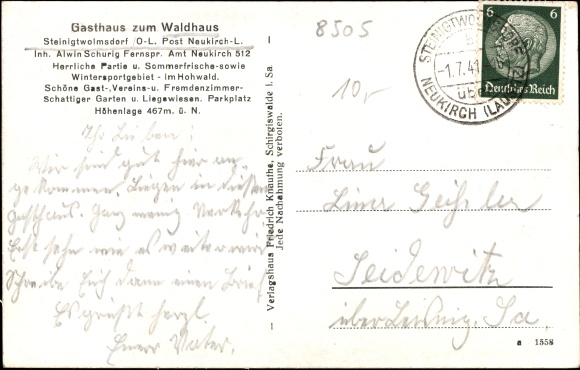 Gasthaus zum Waldhaus
Steinigtwolmsdorf /O-L. Post Neukirch-L.
Inh. Alwin Schurig Fernspr. Amt Neukirch 512
Herrliche Partie u. Sommerfrische-sowie
Wintersportgebiet - im Hohwald.
Schöne Gast-, Vereins- u. Fremdenzimmer-
Schattiger Garten u. Liegswiesen. Parkplatz
Höhenlage 467m. ü. N.
Ihr Lieben!
Wir sind gut hier an-
gekommen, liegen in diesem
Gasthaus. Ganz wenig Verkehr.
sehn wie es weiter
Schreibe Euch dann einen Brief
Es grüßt herzl.
Euer Vater.
Verlagshaus Friedrich Knauthe, Schirgiswalde i. Sa.
Jede Nachahmung verboten.
8505
10,-
STEINIGTWOLMSDORF
-1.7.41
über
NEUKIRCH (LAUSITZ)
6 6
Deutsches Reich
Frau
Geißler
Seidewitz
über Leisnig, Sa.
a 1558